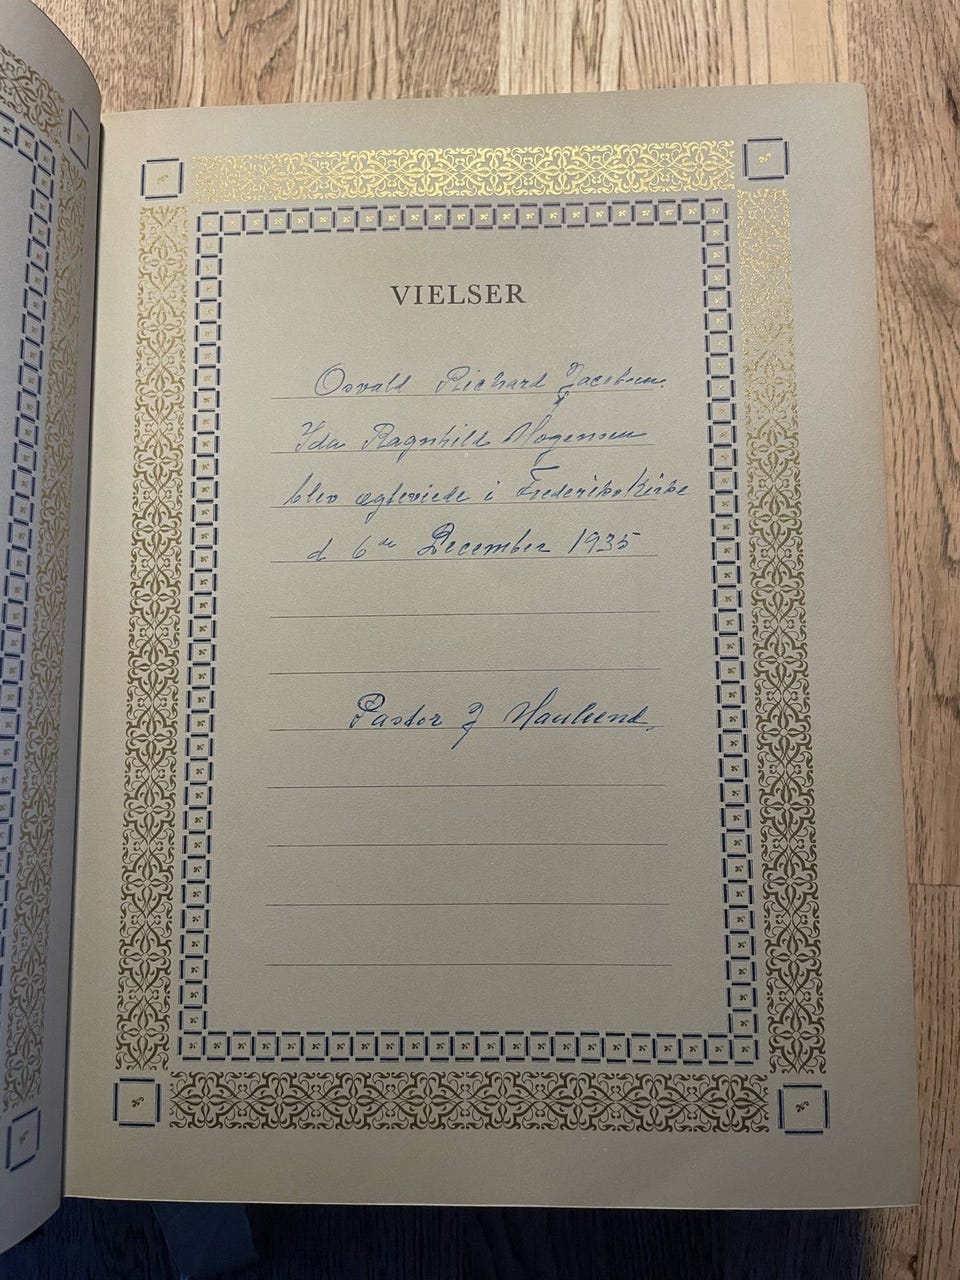 VIELSER
Osvald Richard Jacobsen.
Ida Ragnhild Mogensen
blev ægteviede i Frederiks Kirke
d 6te December 1935
Pastor J